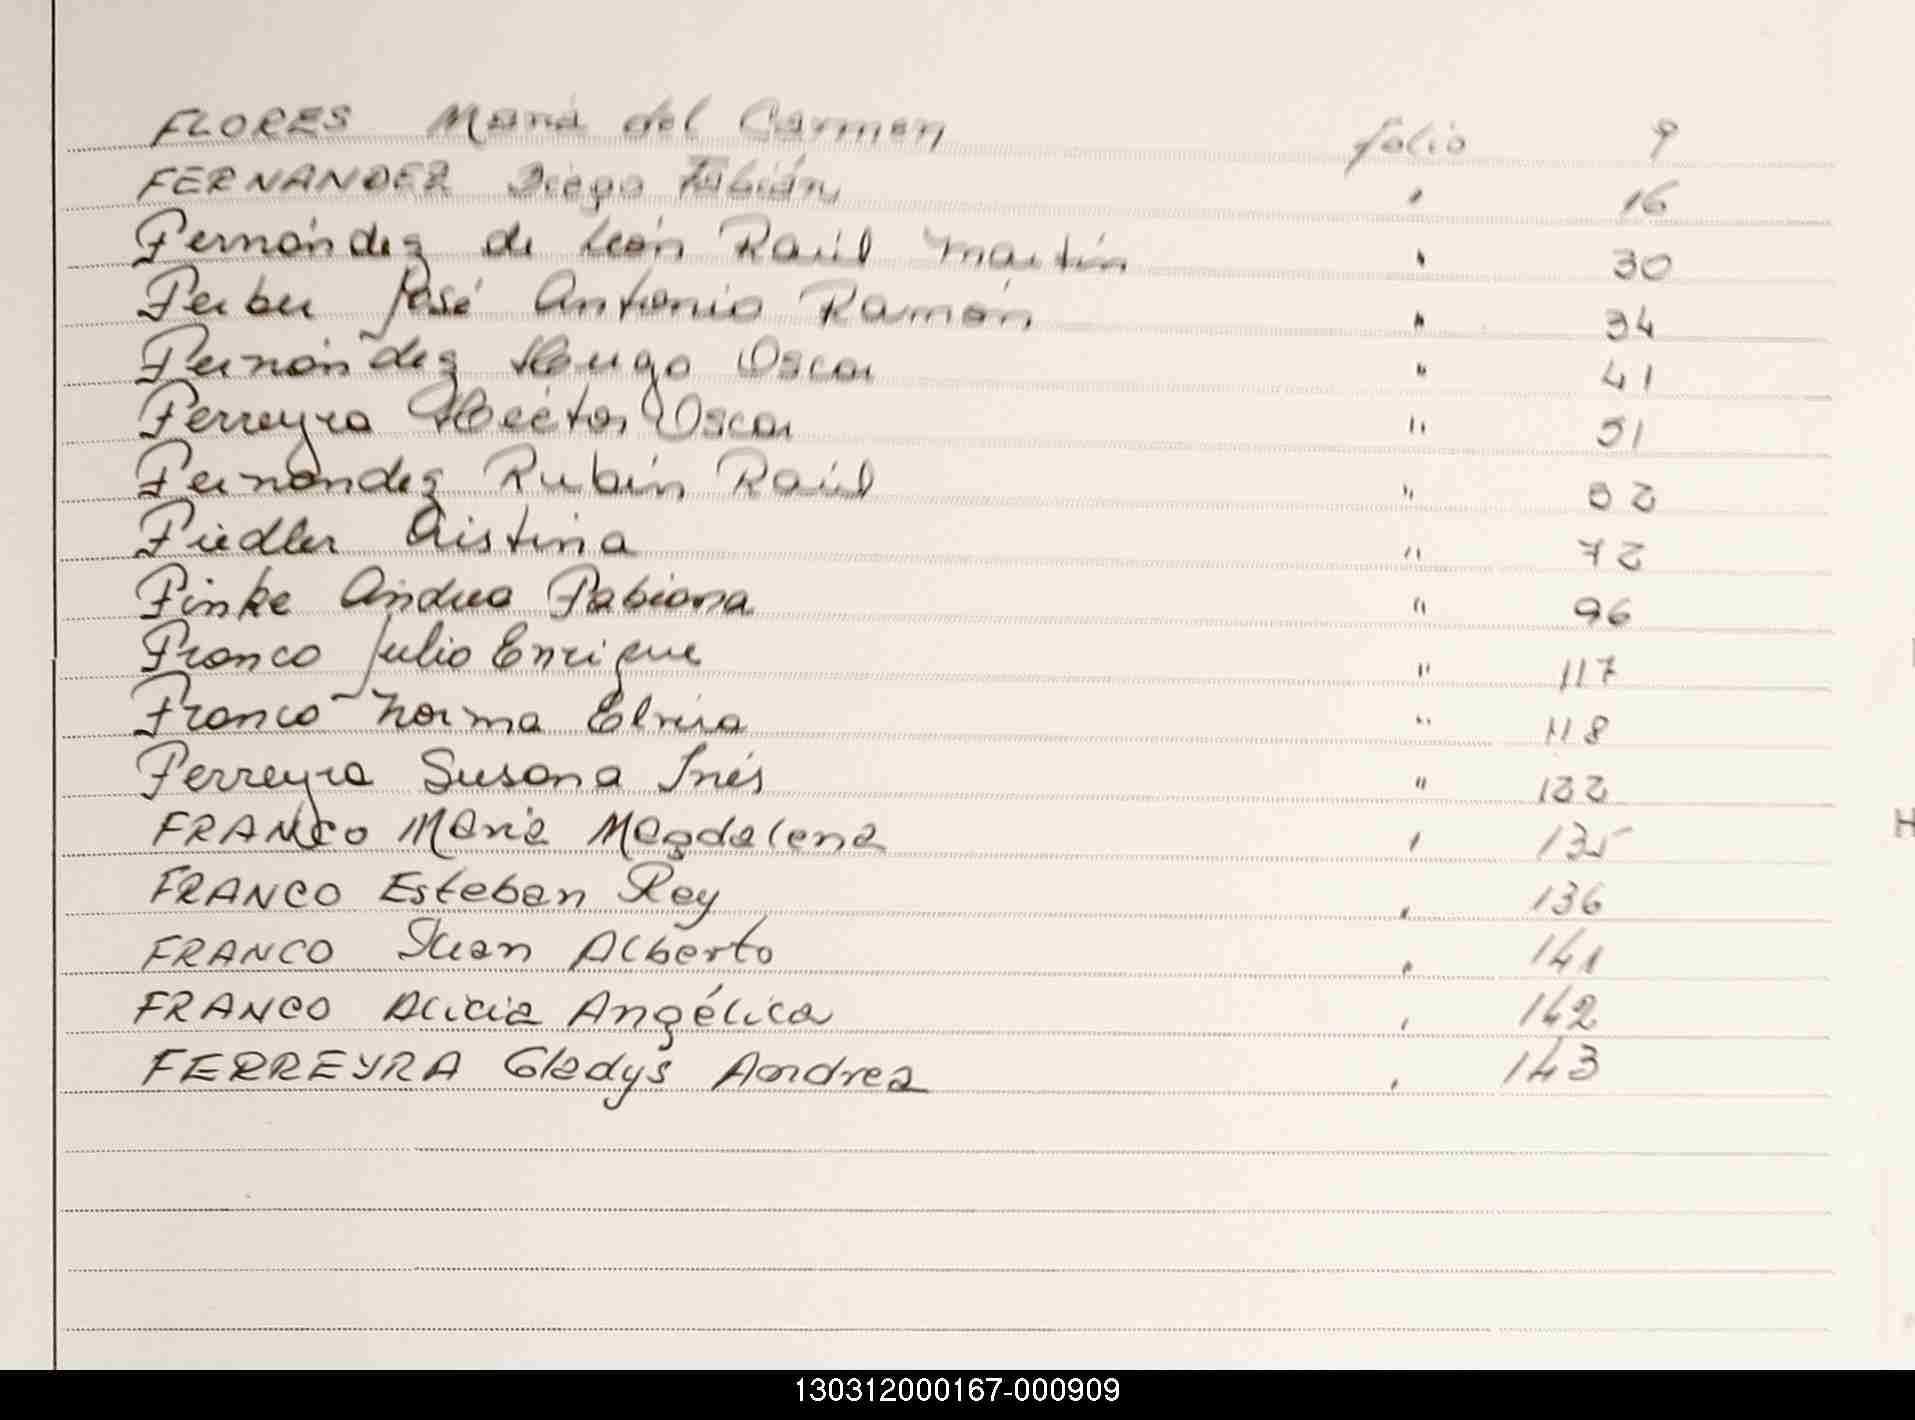 FLORES María del Carmen folio 9
FERNANDEZ Diego Fabián " 16
Fernández de León Raúl Martín " 30
Ferber José Antonio Ramón " 34
Fernández Hugo Oscar " 41
Ferreyra Héctor Oscar " 51
Fernández Rubén Raúl " 52
Fiedler Cristina " 72
Finke Andrea Fabiana " 96
Franco Julio Enrique " 117
Franco Norma Elvira " 118
Ferreyra Susana Inés " 122
FRANCO María Magdalena " 135
FRANCO Esteban Rey " 136
FRANCO Juan Alberto " 141
FRANCO Alicia Angélica " 142
FERREYRA Gladys Andrea " 143
H
130312000167-000909